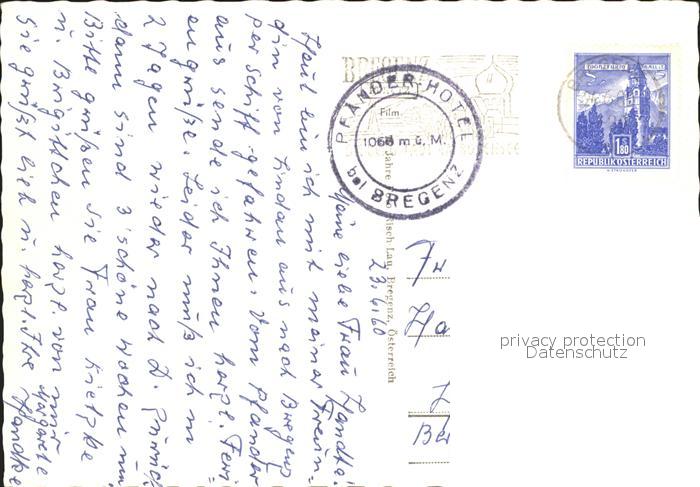 Meine liebe Frau Handke!
Heut bin ich mit meiner Freun-
din von Lindau aus nach Bregenz
per Schiff gefahren. Vom Pfänder
aus sende ich Ihnen herzl. Feri-
engrüße. Leider muß ich in
2 Tagen wieder nach D. zurück
dann sind 3 schöne Wochen um
Bitte grüßen Sie Frau Kietzke
u. Brigittchen herzl. von mir
Sie grüßt lieb u. herzl. Ihre
Margarete
Handke
23.6.60
BREGENZ
PFÄNDER-HOTEL
Film
1065 m ü. M.
bei BREGENZ
Risch Lau, Bregenz, Österreich
1.80
REPUBLIK ÖSTERREICH
Fr
Ha
Be
privacy protection
Datenschutz